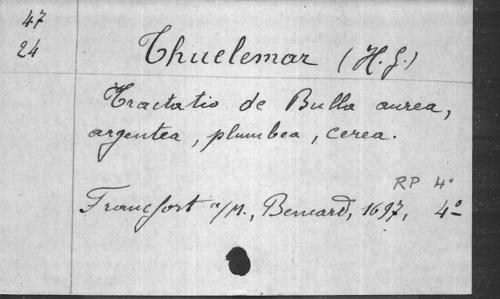 47
24
Thuelemar (H. G.)
Tractatio de Bulla aurea,
argentea, plumbea, cerea.
RP 4°
Francfort a/M., Bernard, 1697, 4°